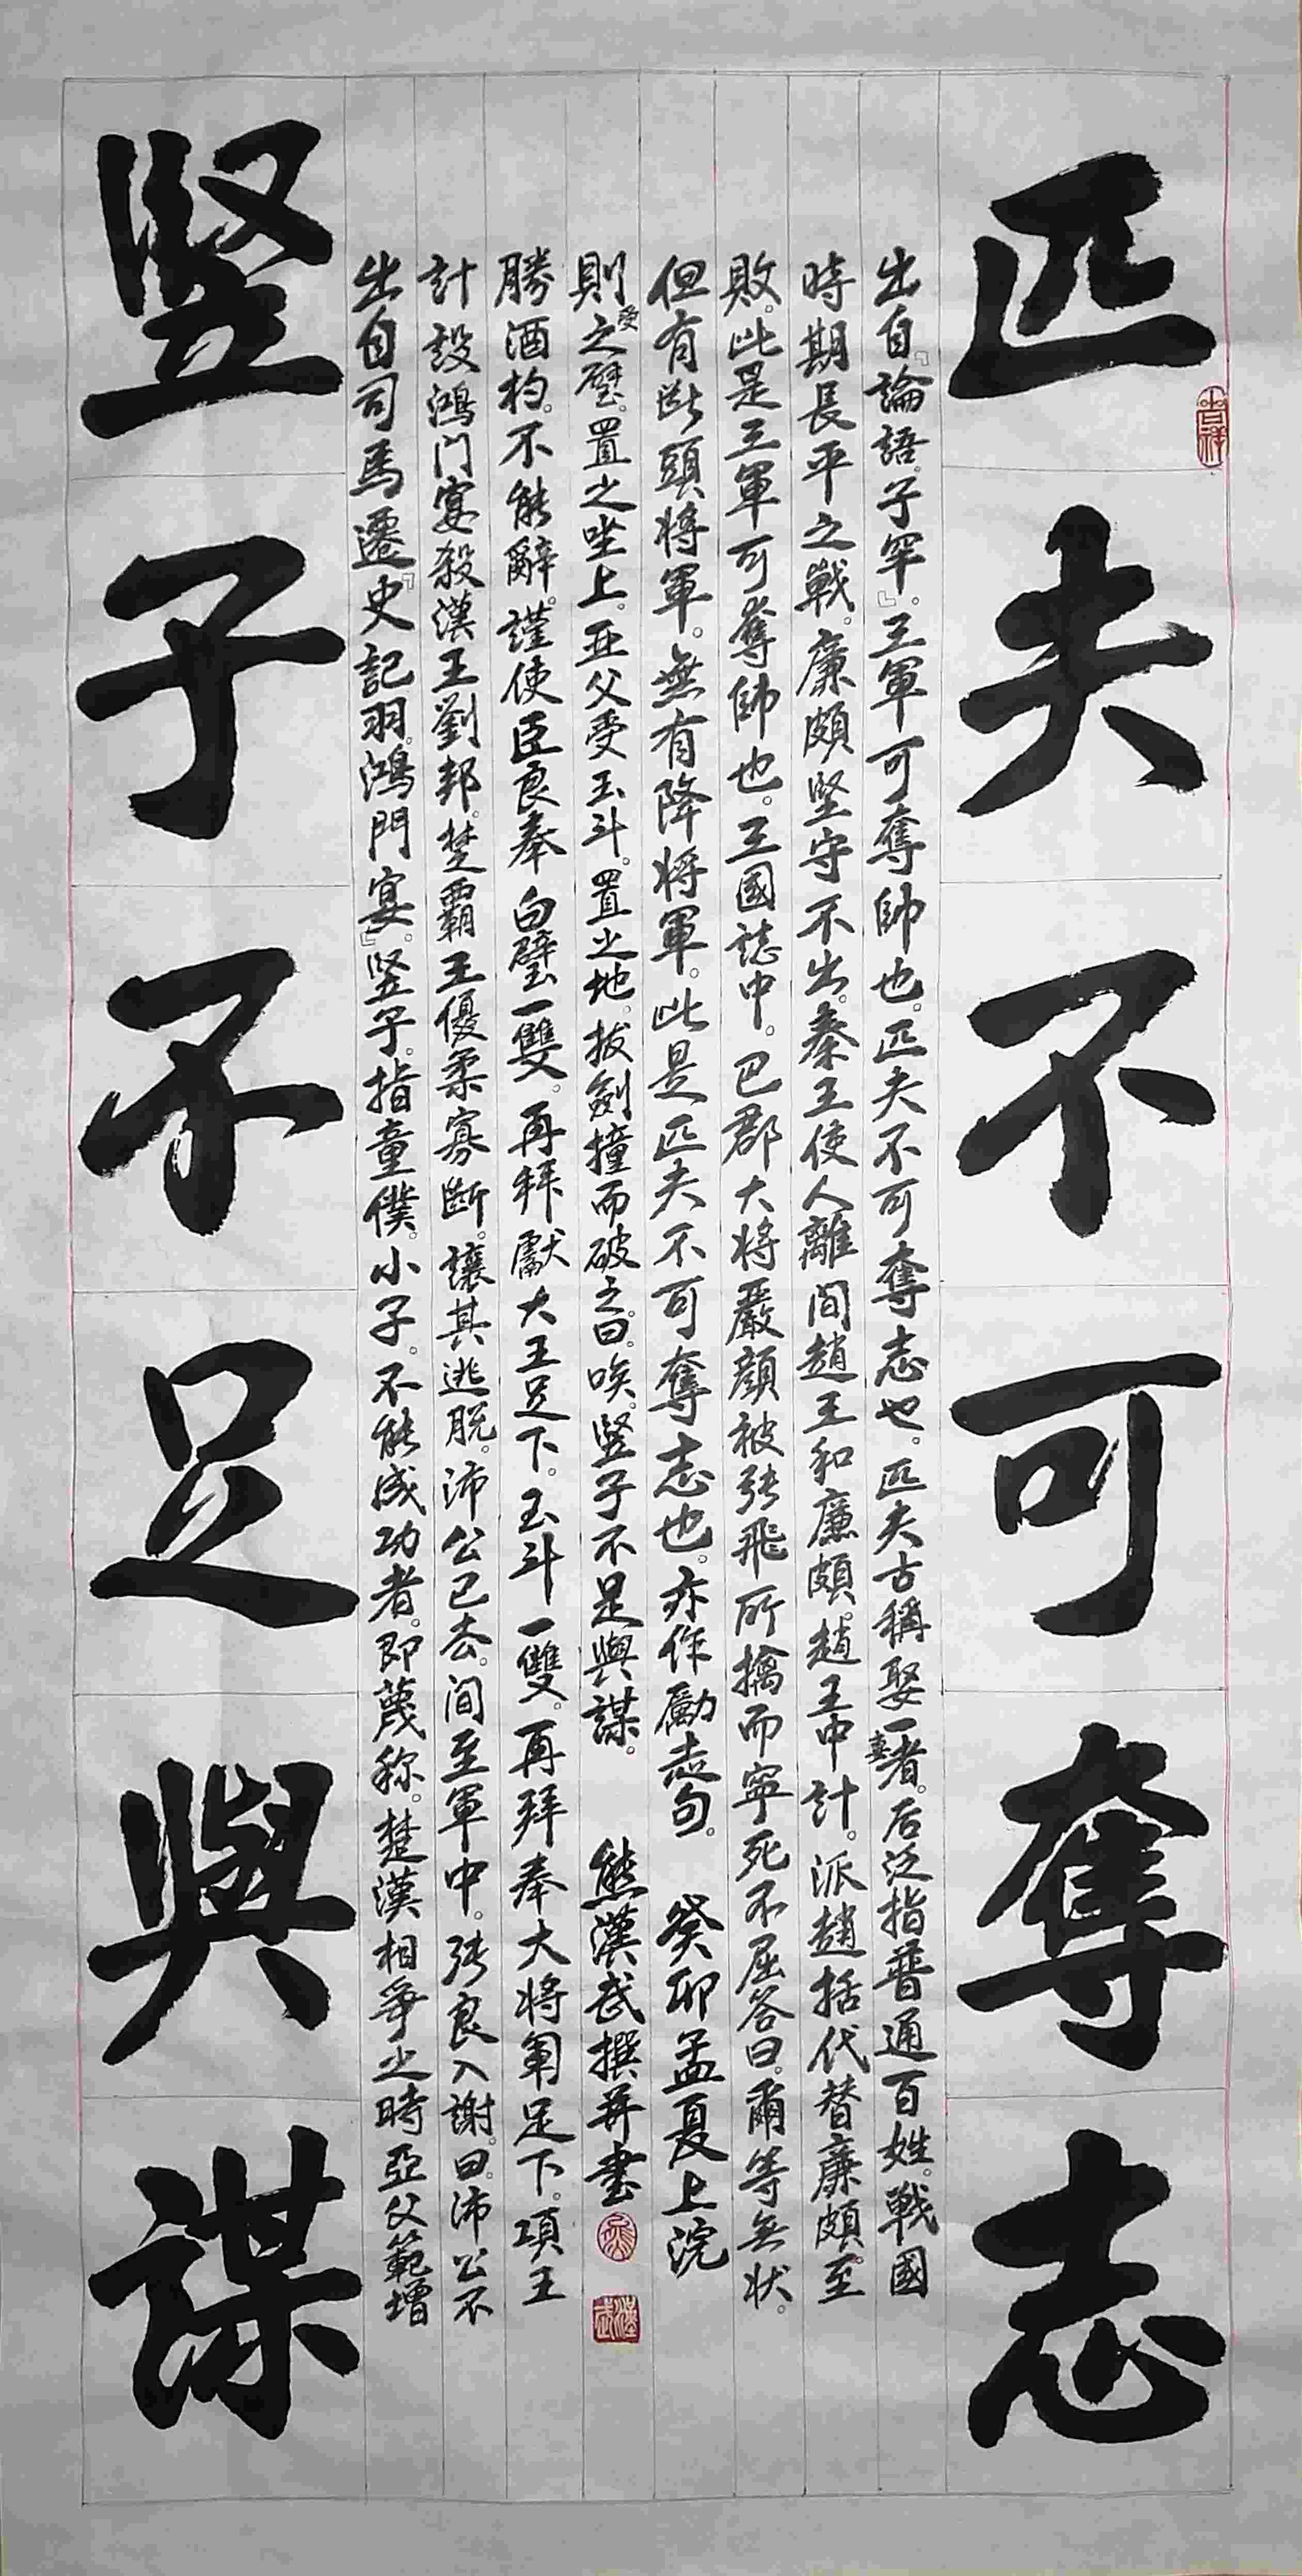 匹夫不可奪志
吉祥
出自『論語。子罕』。三軍可奪帥也。匹夫不可奪志也。匹夫古稱娶一妻者。后泛指普通百姓。戰國
時期長平之戰。廉頗堅守不出。秦王使人離间趙王和廉頗。趙王中計。派趙括代替廉頗。至
敗。此是三軍可奪帥也。三國誌中。巴郡大将嚴顔被張飛所擒而寧死不屈答曰。爾等無状。
但有断頭将軍。無有降将軍。此是匹夫不可奪志也。亦作勵志句。 癸卯孟夏上浣
竖子不足與謀
出自司馬遷『史記羽。鴻門宴』。竖子。指童僕。小子。不能成功者。即蔑称。楚漢相爭之時亞父範增
計設鴻门宴殺漢王劉邦。楚霸王優柔寡断。讓其逃脱。沛公已去。间至軍中。張良入謝。曰。沛公不
勝酒杓。不能辭。謹使臣良奉白璧一雙。再拜獻大王足下。玉斗一雙。再拜奉大将軍足下。項王
則受之璧。置之坐上。亚父受玉斗。置之地。拔劍撞而破之。曰。唉。竖子不足與謀。 熊漢武撰并書
漢武